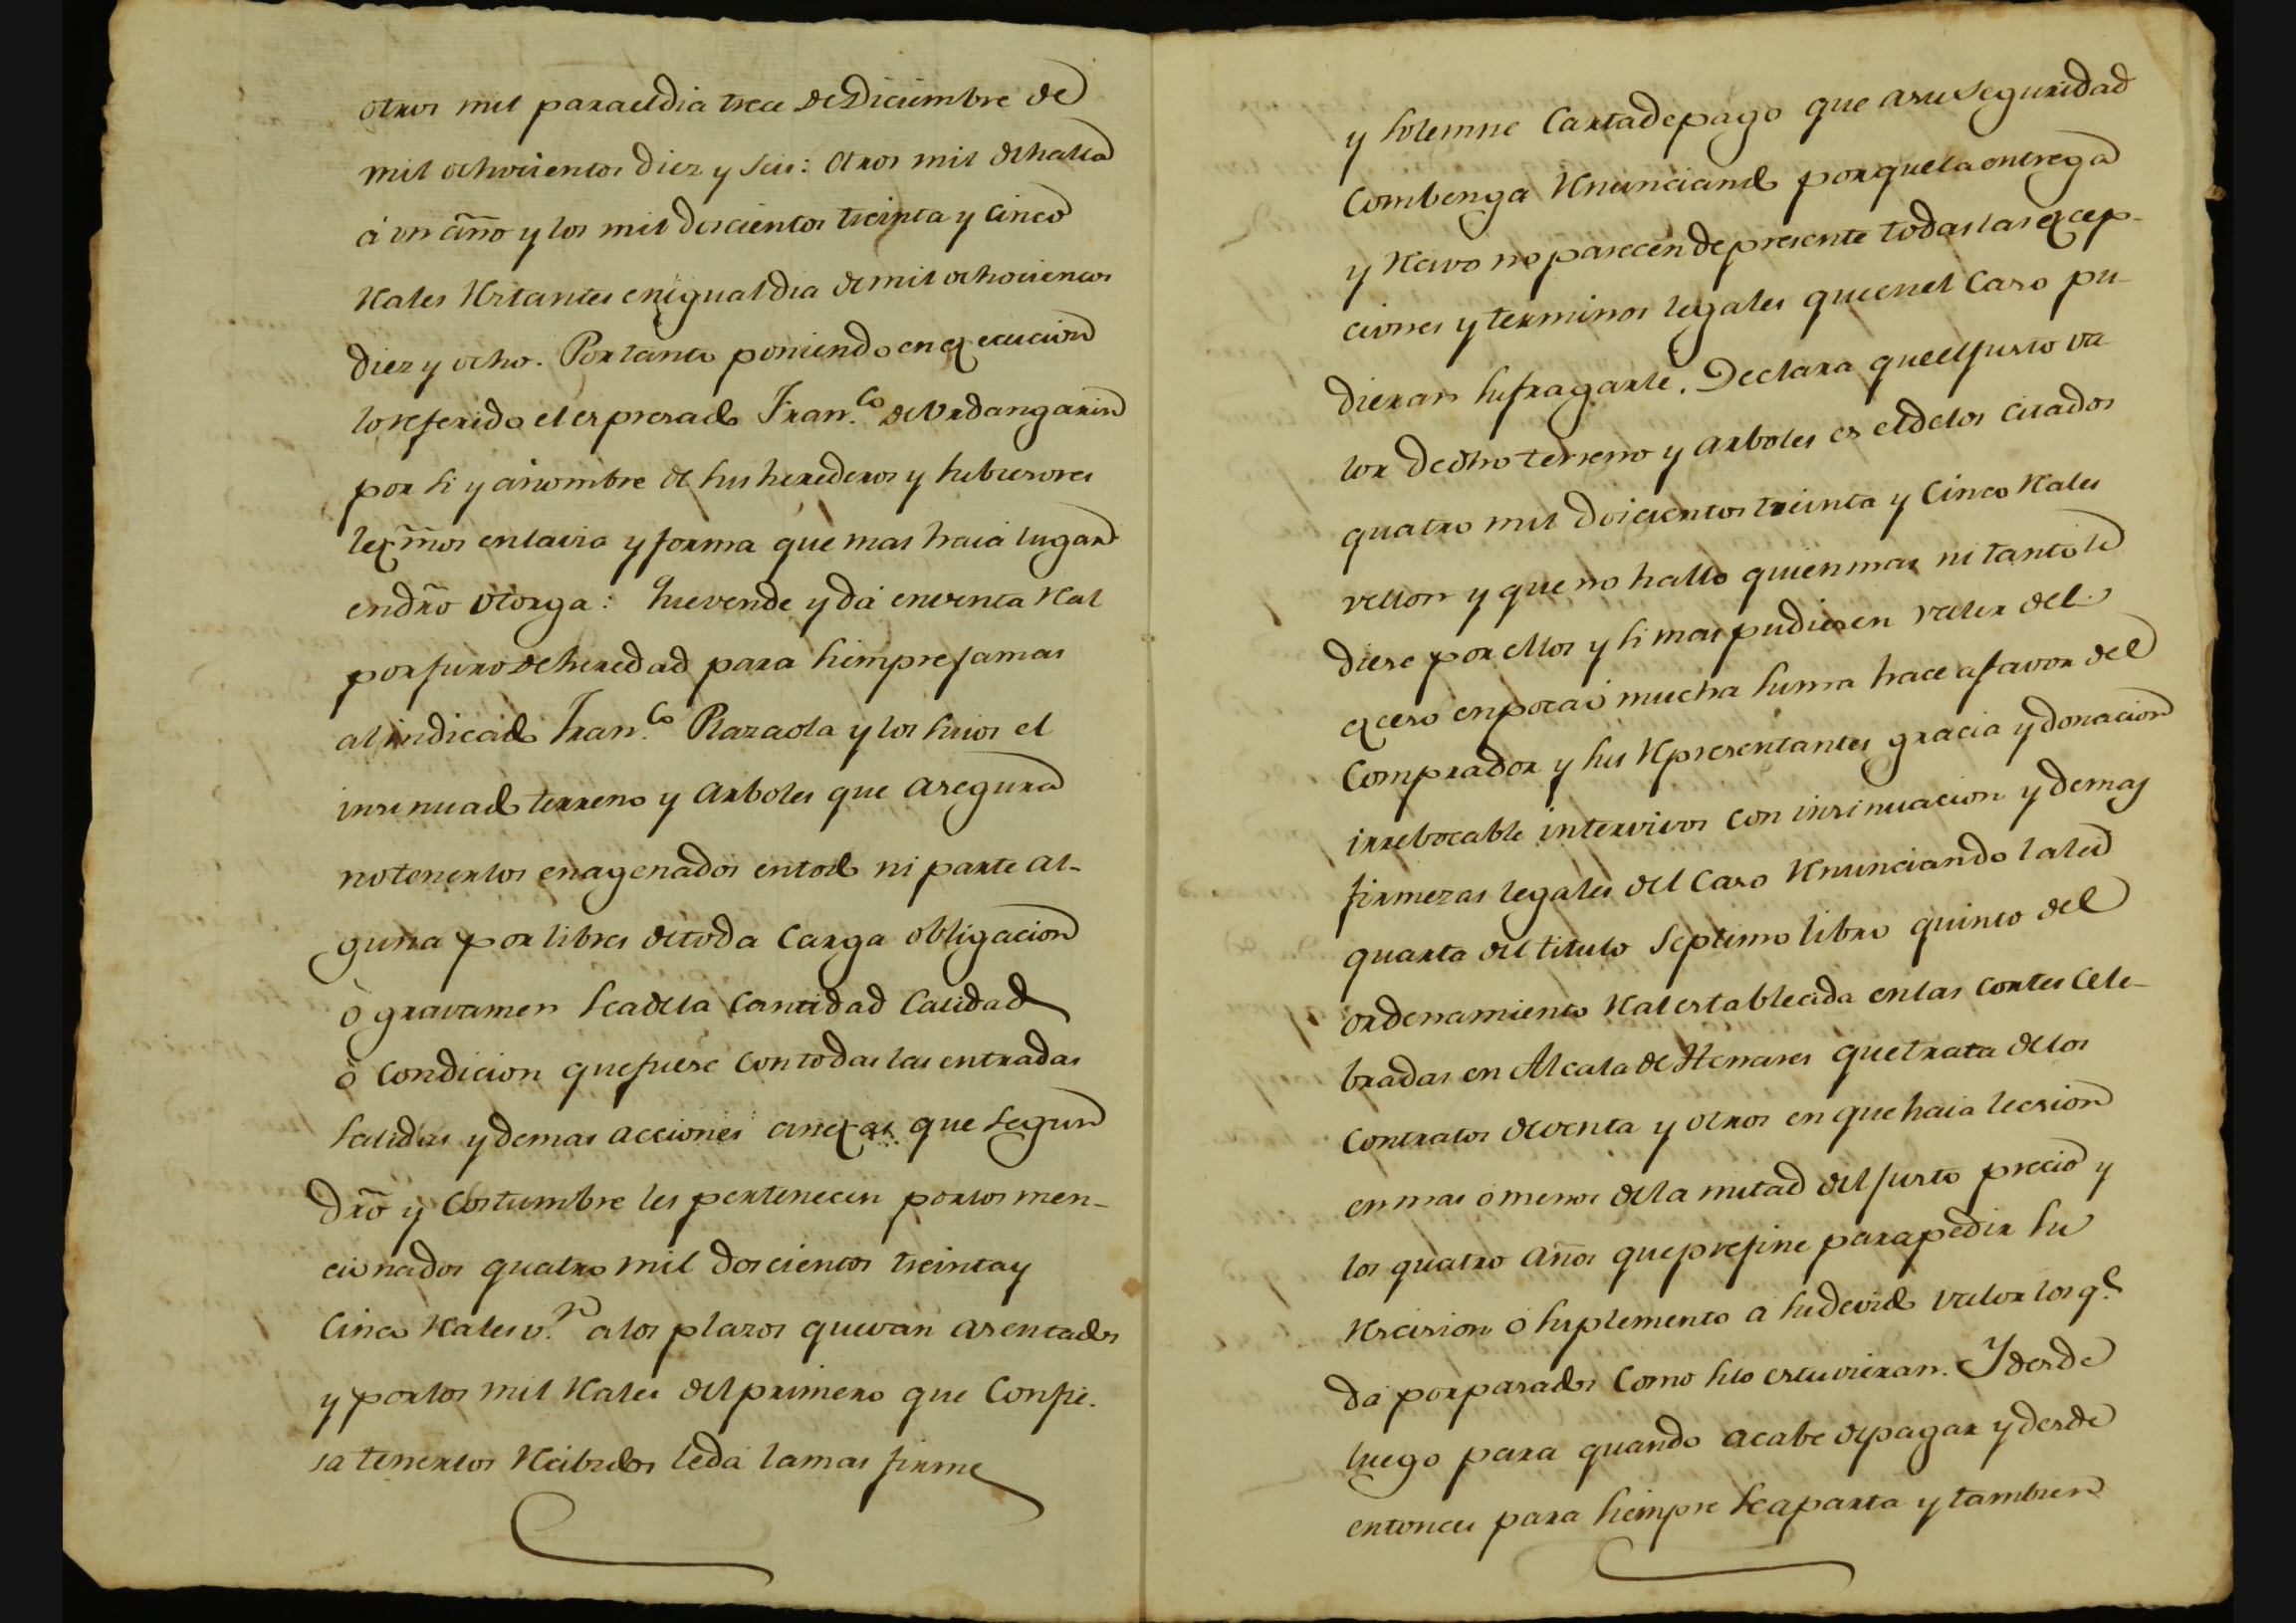 otros mil para el dia trece de Diciembre de
mil ochocientos diez y seis: otros mil de halla
á un año y los mil doscientos treinta y cinco
Rales Restantes en igual dia de mil ochocientos
diez y ocho. Por tanto poniendo en execucion
lo referido el expresado Fran.co de Urdangarin
por si y á nombre de sus herederos y subcesores
lexmos en la via y forma que mas haia lugar
en dro otorga: Que vende y dá en venta Ral
por juro de heredad para siempre jamas
al indicado Fran.co Plazaola y los suios el
insinuado terreno y Arboles que asegura
no tenerlos enagenados en todo ni parte al-
guna por libres de toda Carga obligacion
ò gravamen sea de la Cantidad Calidad
ò Condicion que fuese con todas las entradas
salidas y demas acciones anexas que segun
dro y Costumbre les pertenecen por los men-
cionados quatro mil doscientos treinta y
Cinco Rales v.n a los plazos que van asentados
y por los mil Rales del primero que Confie-
sa tenerlos Recibidos le dá la mas firme
y solemne Carta de pago que a su seguridad
Combenga Renunciando por que la entrega
y Recivo no parecen de presente todas las excep-
ciones y terminos legales que en el Caso pu-
dieran sufragarle. Declara que el justo va-
lor de dho terreno y arboles es el de los citados
quatro mil doscientos treinta y Cinco Rales
vellon y que no hallo quien mas ni tanto le
diese por ellos y si mas pudiesen valer del
exceso en poca ó mucha suma hace a favor del
Comprador y sus Representantes gracia y donacion
irrebocable intervivos con insinuacion y demas
firmezas legales del Caso Renunciando la lei
quarta del titulo septimo libro quinto del
ordenamiento Ral establecida en las cortes Cele-
bradas en Alcala de Henares que trata de los
Contratos de venta y otros en que haia lecsion
en mas ó menos de la mitad del justo precio y
los quatro años que prefine para pedir su
Rescision ó suplemento á su devido valor los q.e
dá por pasados Como si lo estuvieran. Y desde
luego para quando acabe de pagar y desde
entonces para siempre se aparta y tambien